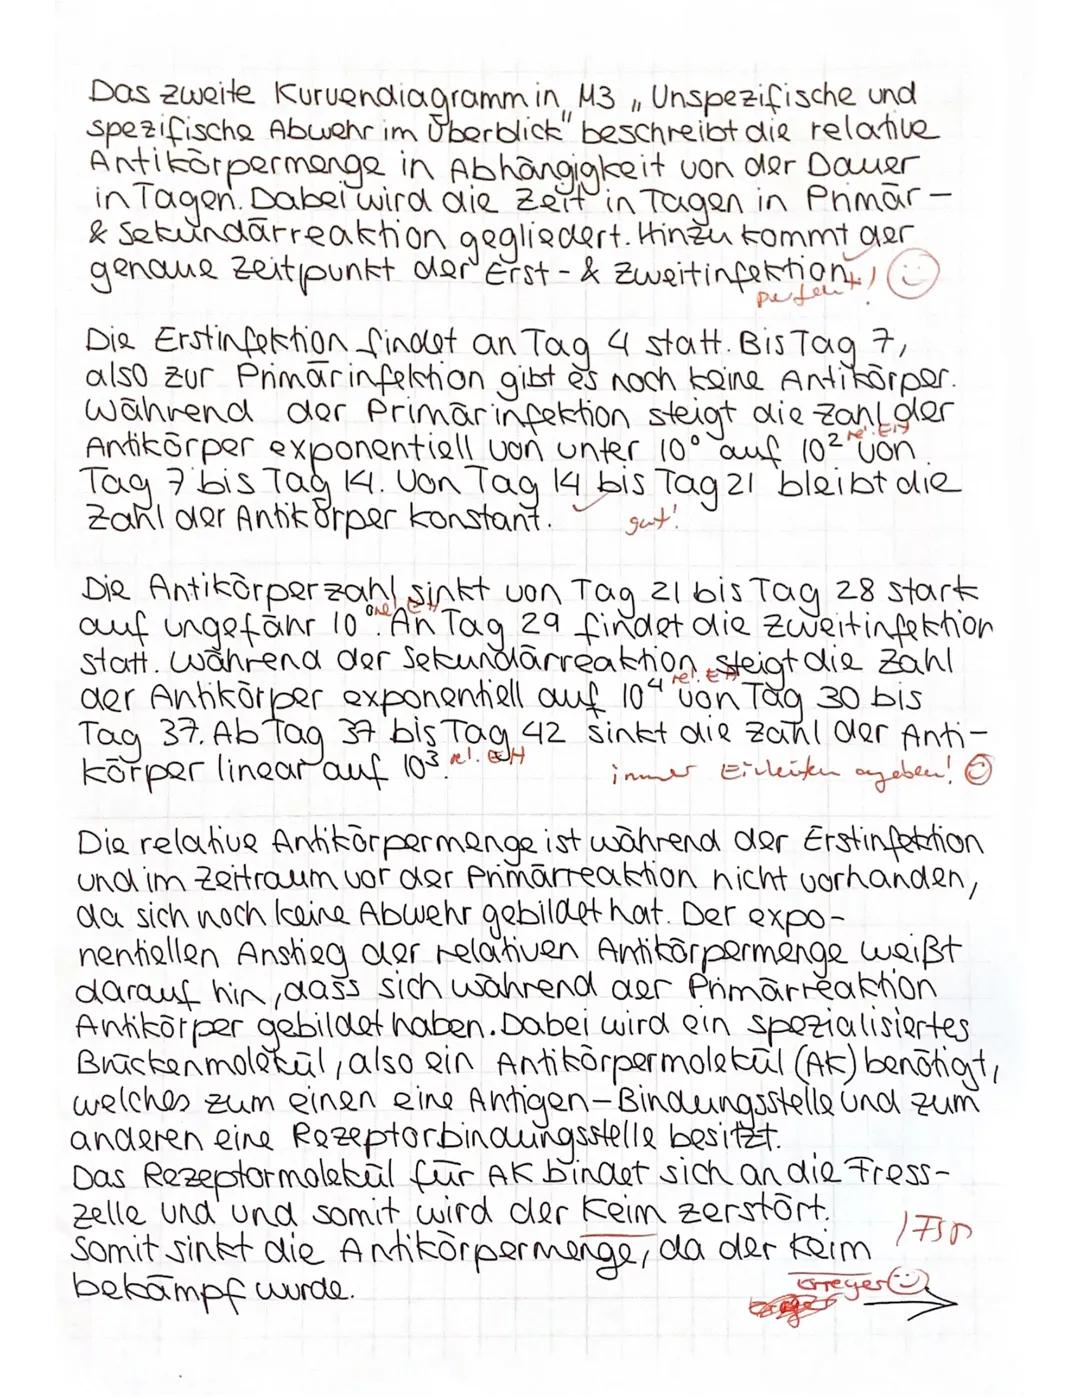 Das zweite Kurvendiagramm in M3 „Unspezifische und
spezifische Abwehr im Überblick" beschreibt die relative
Antikörpermenge in Abhängigkeit von der Dauer
in Tagen. Dabei wird die Zeit in Tagen in Primär-
& Sekundärreaktion gegliedert. Hinzu kommt der
genaue Zeitpunkt der Erst- & Zweitinfektion.
perfekt!
Die Erstinfektion findet an Tag 4 statt. Bis Tag 7,
also zur Primärinfektion gibt es noch keine Antikörper.
Während der Primärinfektion steigt die Zahl der
Antikörper exponentiell von unter 10⁰ auf 10² rel. EH von
Tag 7 bis Tag 14. Von Tag 14 bis Tag 21 bleibt die
Zahl der Antikörper konstant.
gut!
Die Antikörperzahl sinkt von Tag 21 bis Tag 28 stark
auf ungefähr 10⁰ rel. EH. An Tag 29 findet die Zweitinfektion
statt. Während der Sekundärreaktion steigt die Zahl
der Antikörper exponentiell auf 10⁴ rel. EH von Tag 30 bis
Tag 37. Ab Tag 37 bis Tag 42 sinkt die Zahl der Anti-
körper linear auf 10³. rel. EH
immer Einheiten angeben!
Die relative Antikörpermenge ist während der Erstinfektion
und im Zeitraum vor der Primärreaktion nicht vorhanden,
da sich noch keine Abwehr gebildet hat. Der expo-
nentiellen Anstieg der relativen Antikörpermenge weißt
darauf hin, dass sich während der Primärreaktion
Antikörper gebildet haben. Dabei wird ein spezialisiertes
Brückenmolekül, also ein Antikörpermolekül (AK) benötigt,
welches zum einen eine Antigen-Bindungsstelle und zum
anderen eine Rezeptorbindungsstelle besitzt.
Das Rezeptormolekül für AK bindet sich an die Fress-
zelle und und somit wird der Keim zerstört.
Somit sinkt die Antikörpermenge, da der Keim
bekämpf wurde.
Erreger